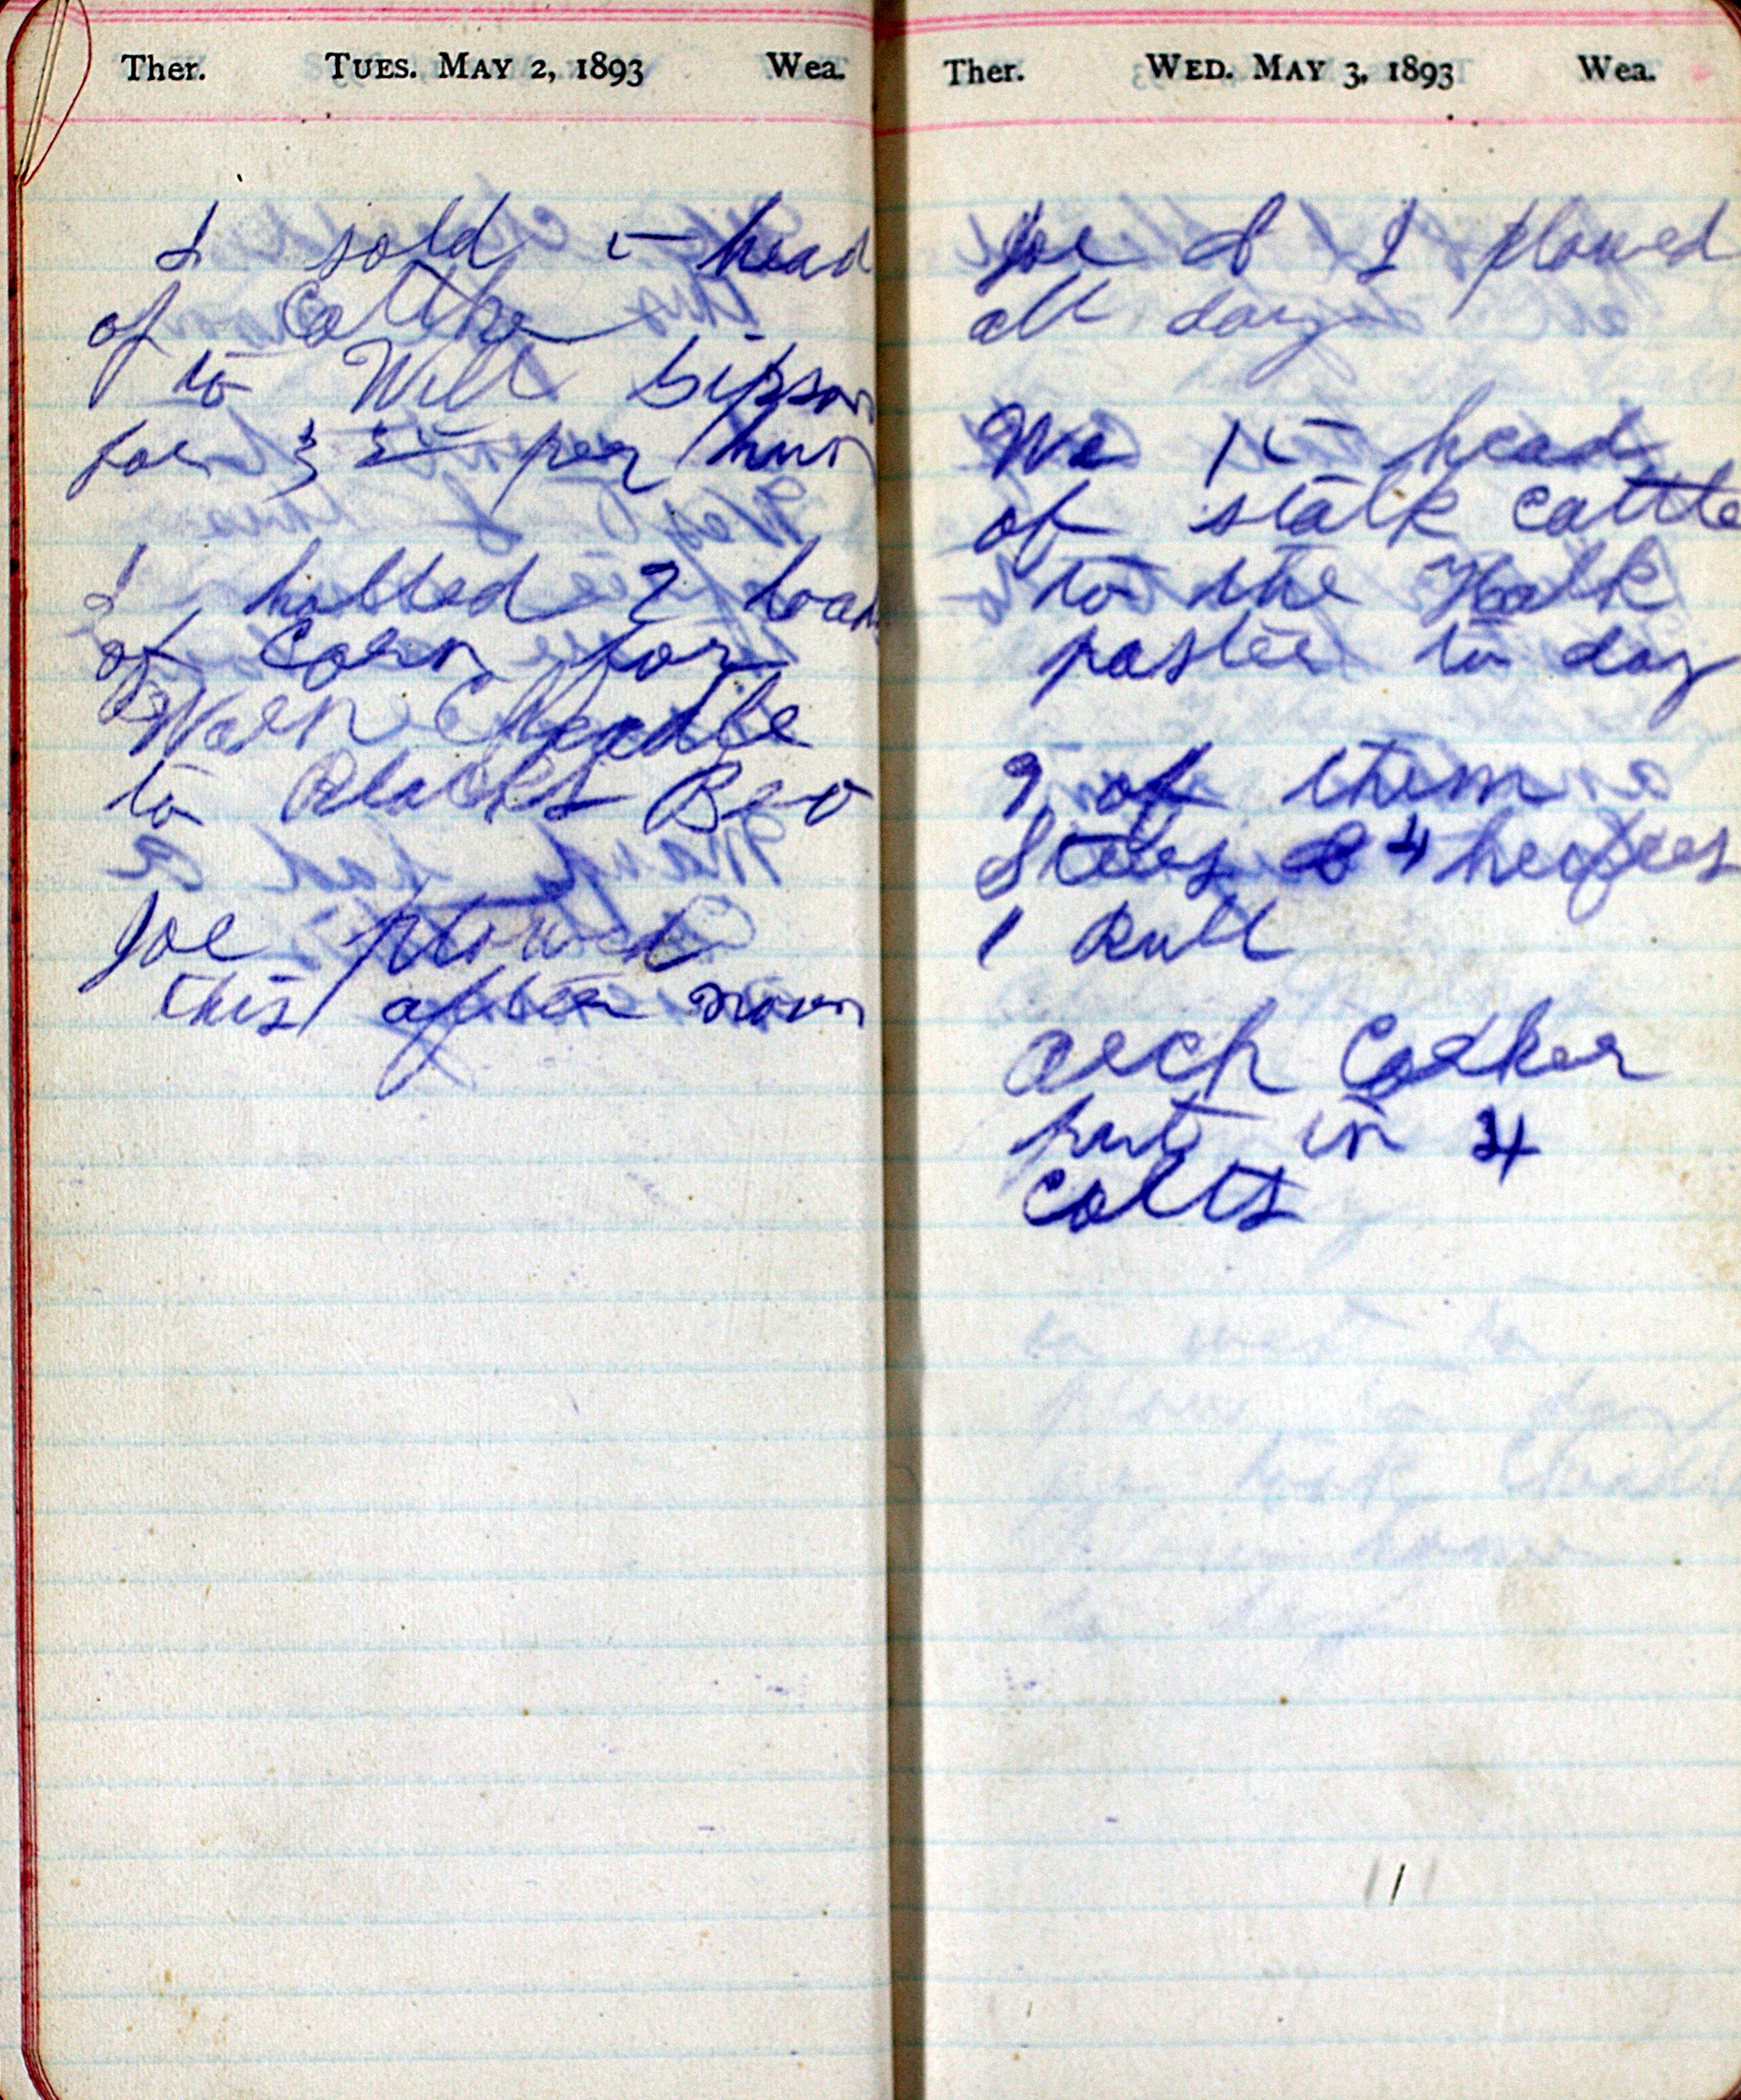 Ther. TUES. MAY 2, 1893 Wea.
I sold 5 head
of Cattle
to Will Sipson
for 3 35 per hun
I halled 2 load
of Corn for
Cheadle
to Blacks Bro
Joe plowed
this after noon
Ther. WED. MAY 3, 1893 Wea.
Joe & I plowed
all day
We 15 head
of stalk cattle
to the
paster to day
9 of them
Steers & 4 heifers
1 Bull
Arch
put in 4
Colts